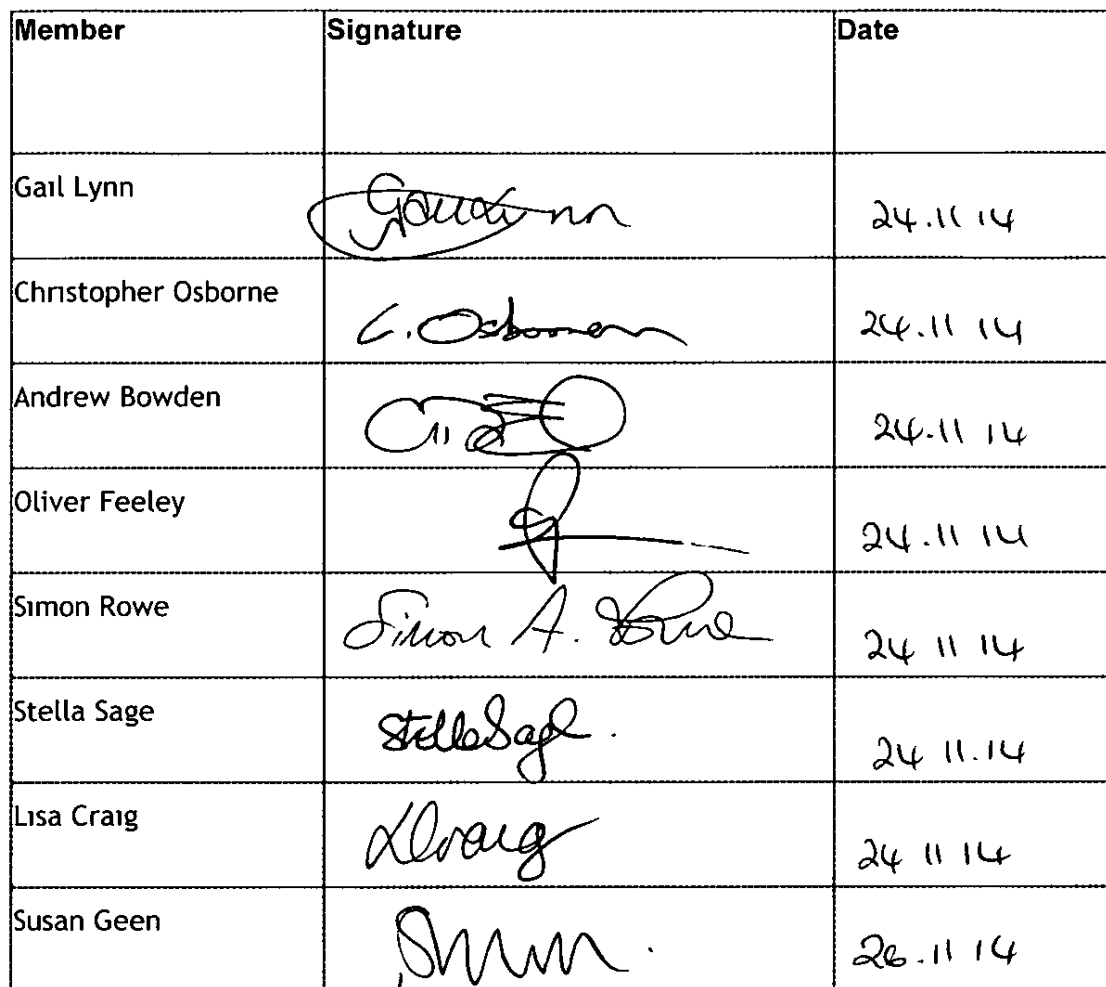 Member Signature Date
Gail Lynn Gail Lynn 24.11 14
Christopher Osborne C. Osborne 24.11 14
Andrew Bowden 24.11 14
Oliver Feeley 24.11 14
Simon Rowe Simon A. Rowe 24 11 14
Stella Sage Stella Sage. 24 11.14
Lisa Craig LCraig 24 11 14
Susan Geen 26.11 14